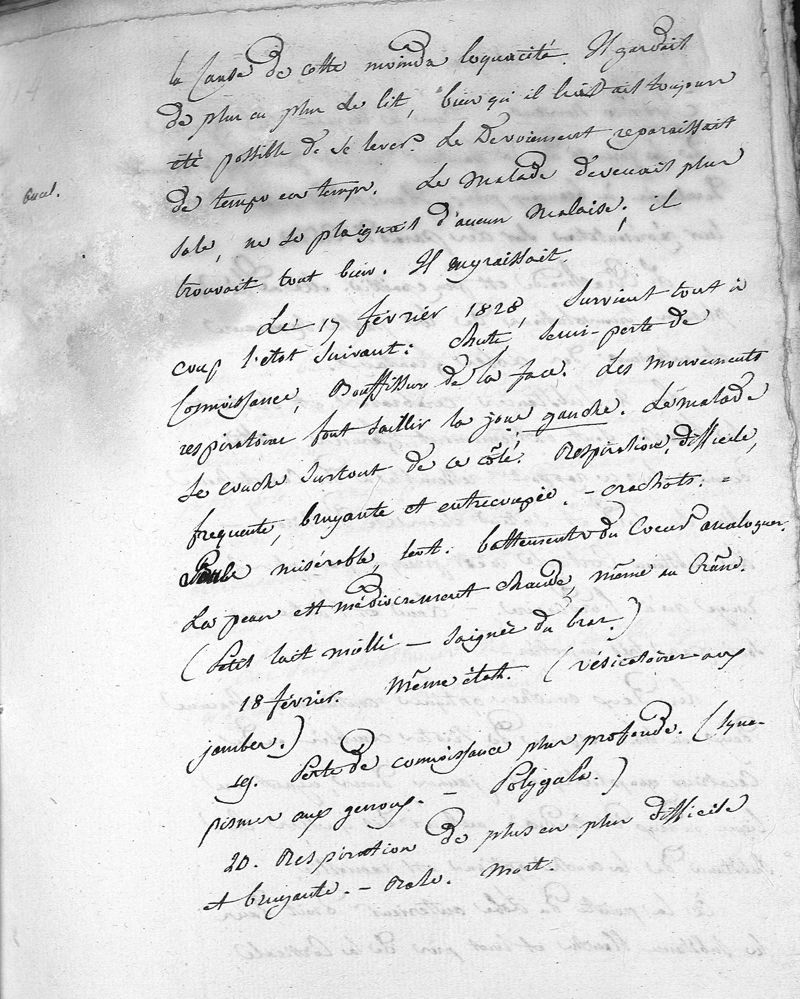 la Cause de cette moindre loquacité. Il gardait
de plus en plus le lit, bien qu'il lui était toujours
été possible de se lever. Le Dévoiement reparaissait
de temps en temps. Le Malade devenait plus
sale, ne se plaignait d'aucun Malaise, il
trouvait tout bien. Il engraissait.
Le 17 février 1828, Survient tout à
coup l'etat Suivant: chute, semi-perte de
Connoissance, Bouffissure de la face. Les mouvements
respiratoires font saillir la joue gauche. Le malade
se couche Surtout de ce côté. Respiration difficile,
frequente, bruyante et entrecoupée. - crachats. =
Pouls misérable, lent. battements du Coeur analogues.
La peau est médiocrement chaude, même au Crâne.
(Petit lait miellé — Saignée du bras.)
18 février. Même état. (vésicatoires aux
jambes.)
19. Perte de connoissance plus profonde. (Syna-
pismes aux genoux. — Polygala.)
20. Respiration de plus en plus difficile
et bruyante. - Rale. Mort.